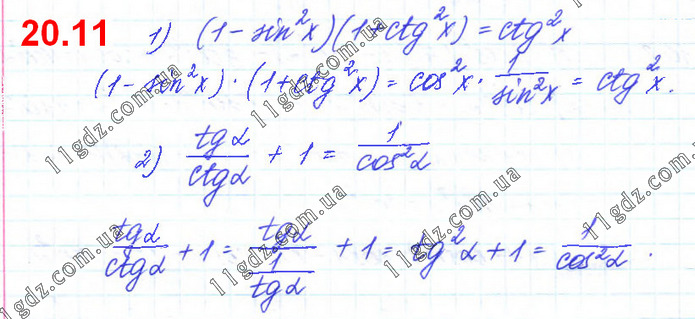 20.11 1) (1 - sin²x)(1 + ctg²x) = ctg²x
(1 - sin²x) · (1 + ctg²x) = cos²x · 1/sin²x = ctg²x.
2) tgα/ctgα + 1 = 1/cos²α
tgα/ctgα + 1 = tgα/(1/tgα) + 1 = tg²α + 1 = 1/cos²α.
11gdz.com.ua
11gdz.com.ua
11gdz.com.ua
11gdz.com.ua
11gdz.com.ua
11gdz.com.ua